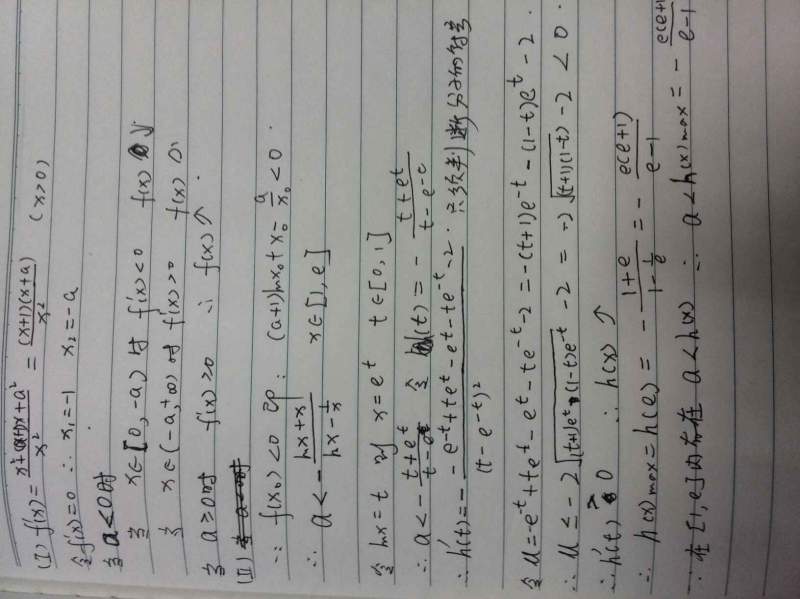 (I) f'(x) = \frac{x²+(a+1)x+a²}{x²} = \frac{(x+1)(x+a)}{x²} (x>0)
令f'(x)=0 ∴ x₁=-1 x₂=-a
当a<0时
当 x∈[0,-a) 时 f'(x)<0 f(x) ↓
当 x∈(-a,+∞) 时 f'(x)>0 f(x)
当 a≥0时 f'(x)>0 ∴ f(x)↑.
(II)
∵ f(x₀)<0 即: (a+1)lnx₀+x₀-\frac{a}{x₀}<0.
∴ a<-\frac{lnx+x}{lnx-\frac{1}{x}} x∈[1,e]
令 lnx=t 则 x=e^t t∈[0,1]
∴ a<-\frac{t+e^t}{t-e^{-t}} 令 h(t)=-\frac{t+e^t}{t-e^{-t}}
∴ h'(t)=-\frac{-e^{-t}+te^t-e^t-te^{-t}-2}{(t-e^{-t})²}. 只须判断分子的符号
令 u=e^{-t}+te^t-e^t-te^{-t}-2=-(t+1)e^{-t}-(1-t)e^t-2.
∴ u≤-2\sqrt{(t+1)e^t·(1-t)e^{-t}}-2=-2\sqrt{(t+1)(1-t)}-2<0.
∴ h'(t)>0 ∴ h(x)↑
∴ h(x)max=h(e)=-\frac{1+e}{1-\frac{1}{e}}=-\frac{e(e+1)}{e-1}
∵ 在[1,e]内存在 a<h(x) ∴ a<h(x)max=-\frac{e(e+1)}{e-1}